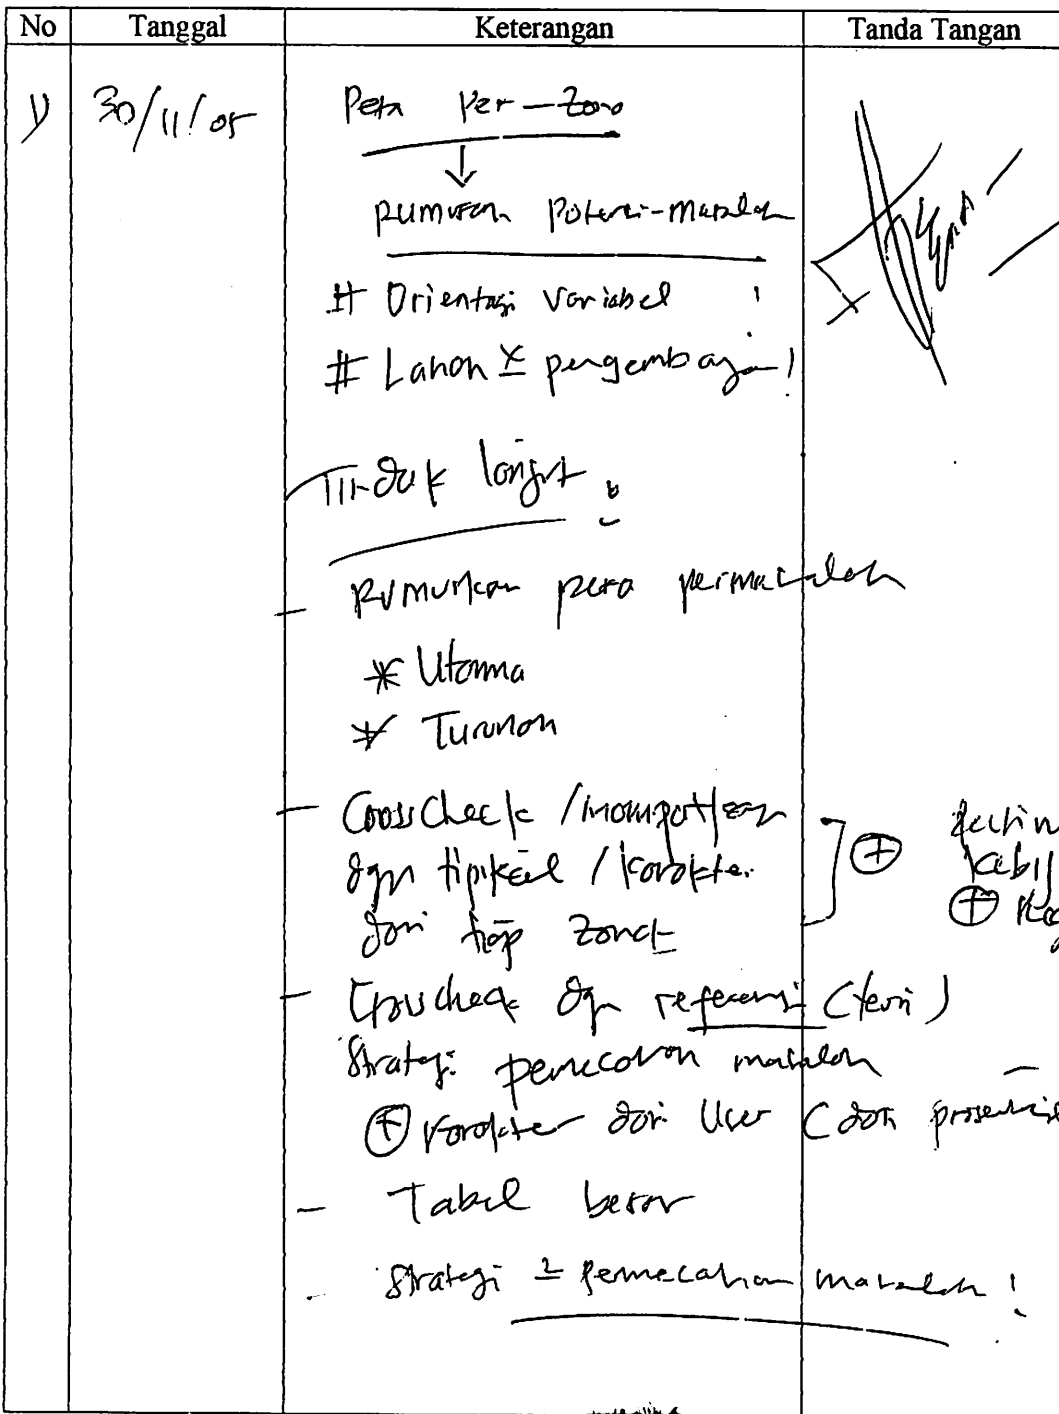 No Tanggal Keterangan Tanda Tangan
1) 30/11/05 Peta Per-Zona
Rumusan Potensi-Masalah
# Orientasi Variabel !
# Lahan pengembangan !
Tindak lanjut :
- Rumuskan peta permasalah
* Utama
* Turunan
- CrossCheck /
dgn tipikal / karakter
dari tiap zona
- Crosscheck dgn referensi (teori)
Strategi pemecahan masalah
⊕ karakter dari User (dari
- Tabel besar
- Strategi pemecahan masalah !